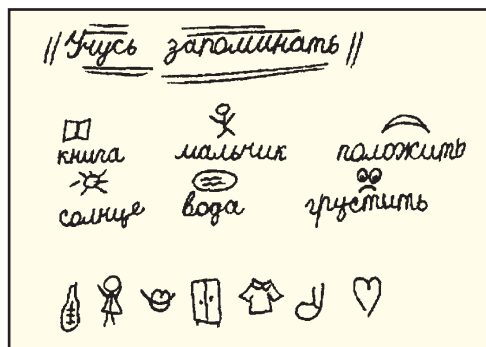 Учусь запоминать
книга мальчик положить
солнце вода грустить